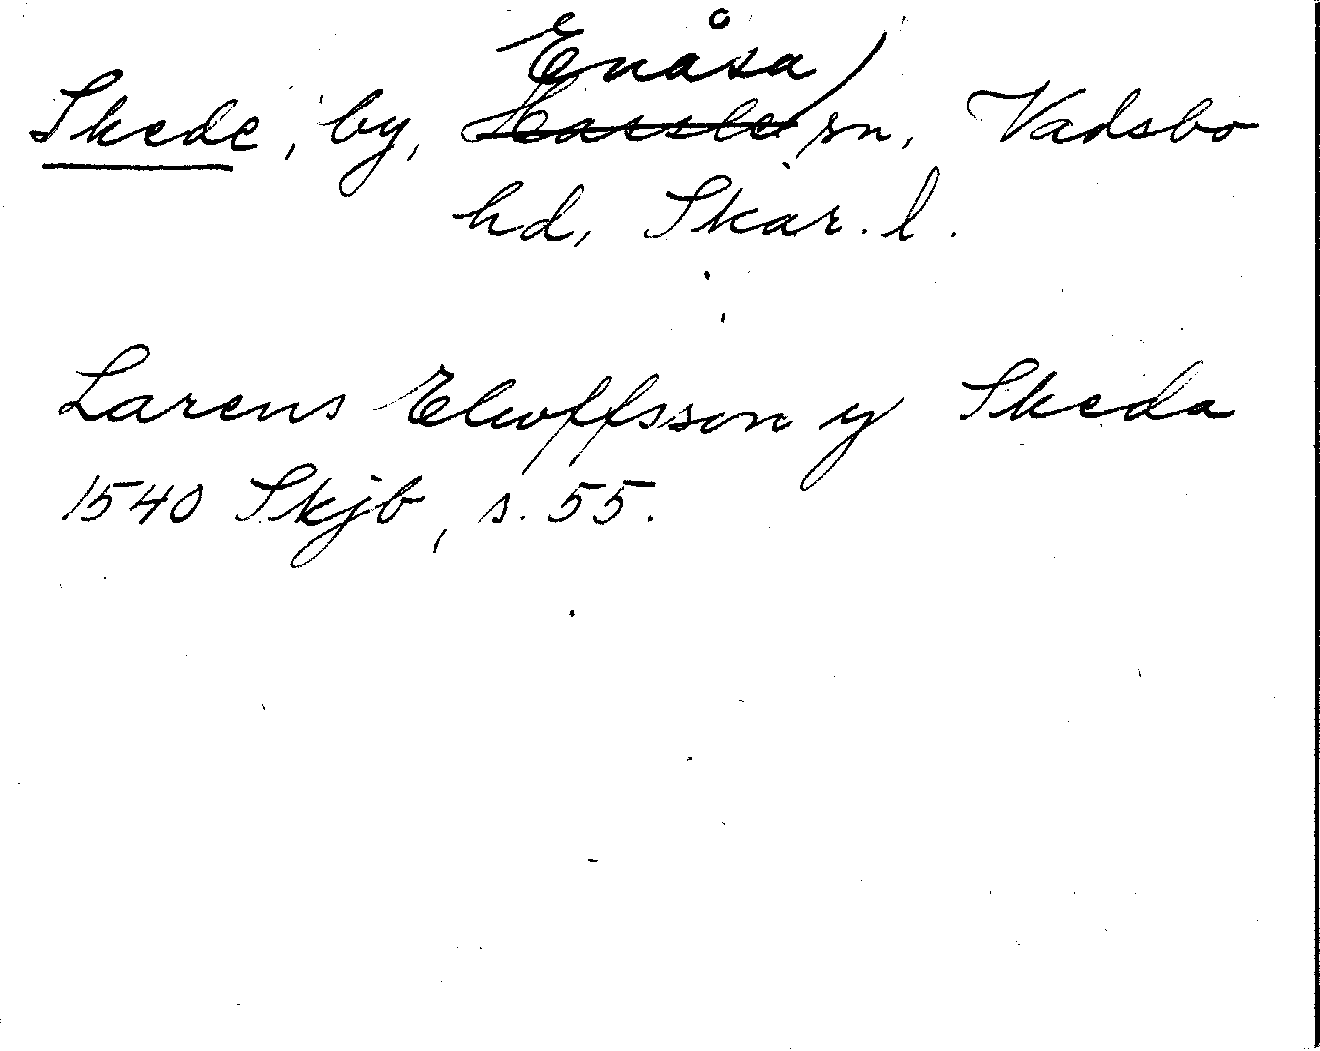 Enåsa
Skede, by, Hassle sn, Vadsbo
hd, Skar. l.
Larens Elwffsson y Skeda
1540 Skjb, s. 55.